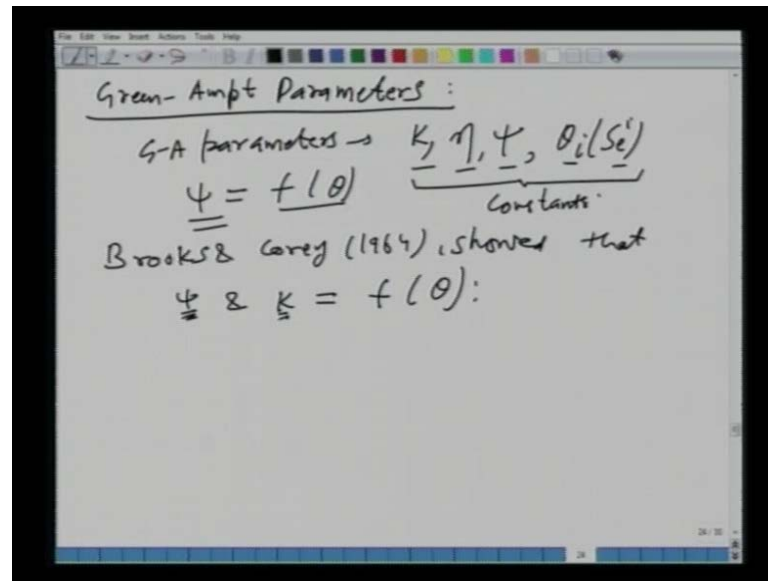 File Edit View Insert Actions Tools Help
Green-Ampt Parameters :
G-A parameters → K, η, ψ, θi(Se^i)
constants.
ψ = f(θ)
Brooks & Corey (1964), showed that
ψ & K = f(θ):
24/30
24